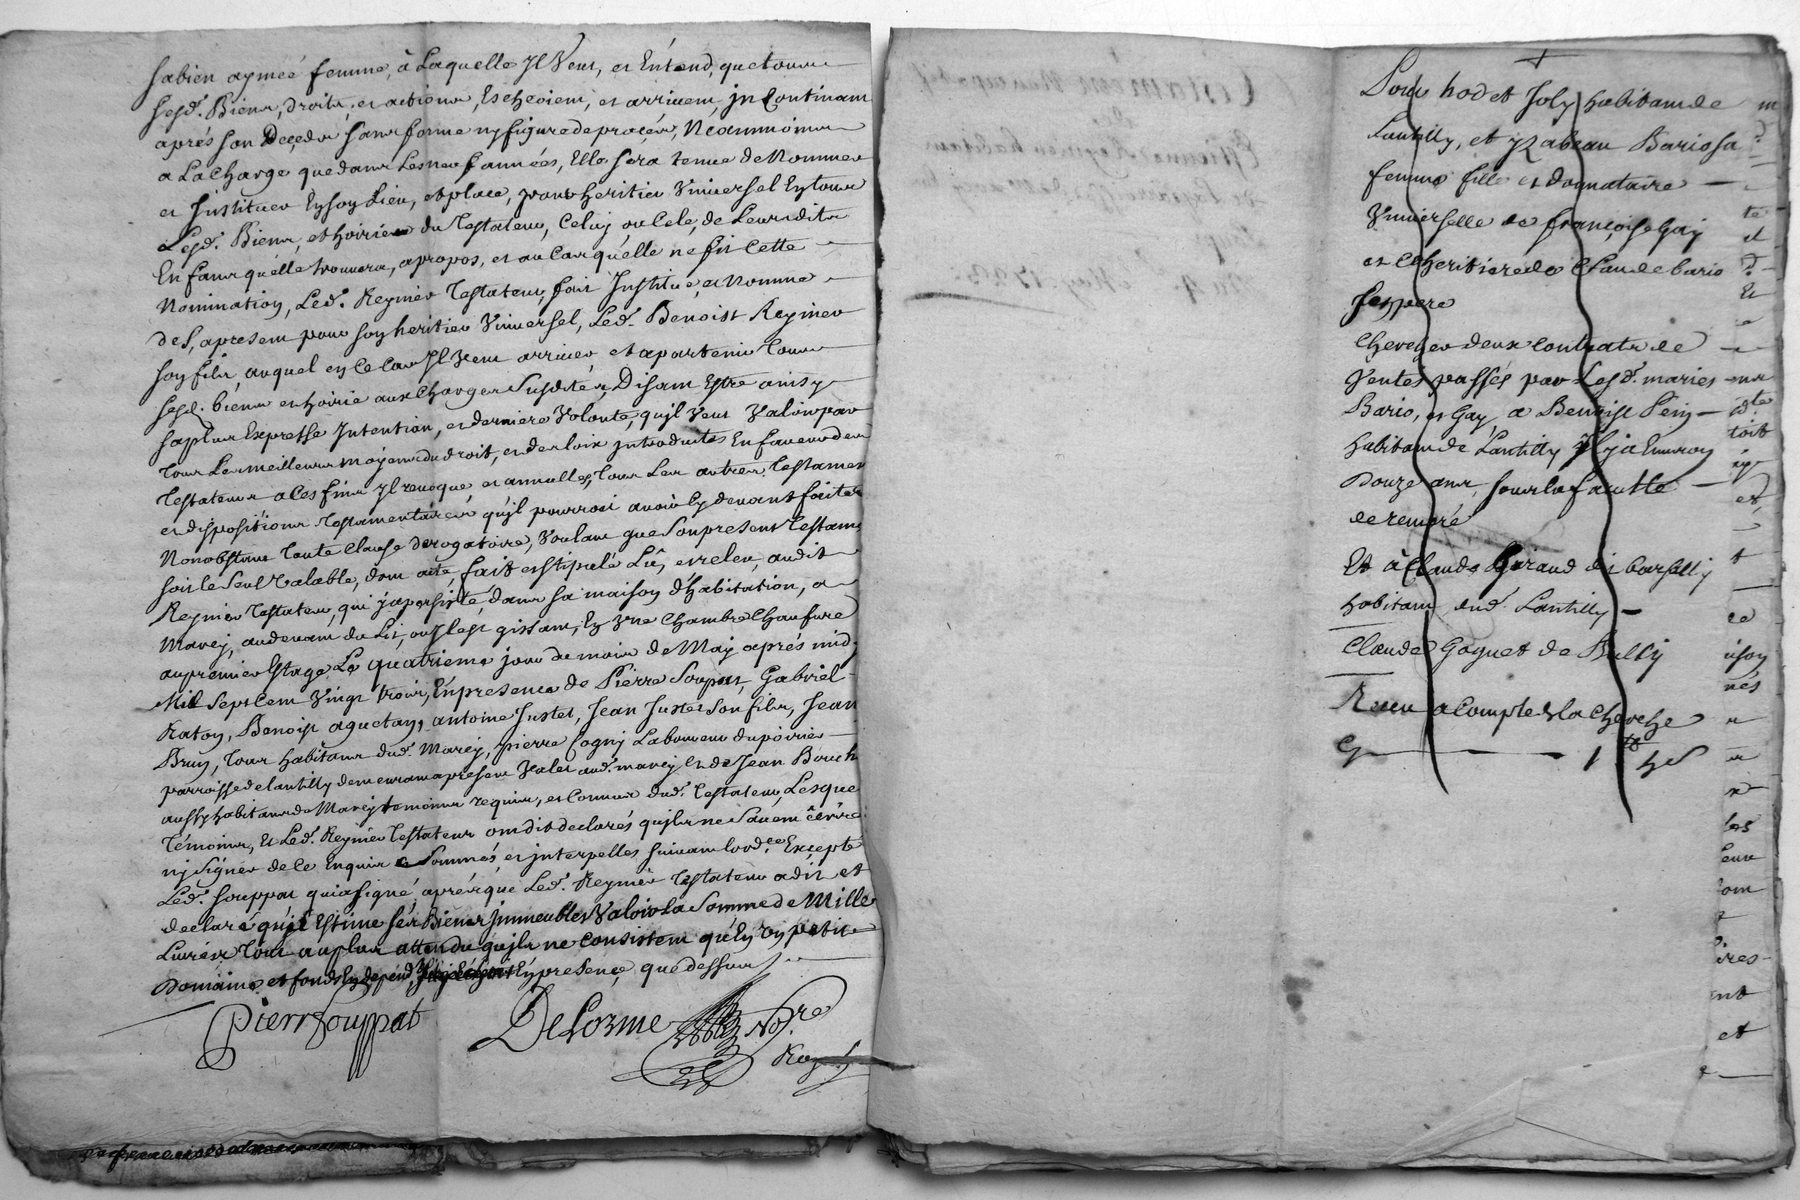 sa bien aymeé femme, à Laquelle Jl Veut, et Entend, que tous
sesd. Biens, droits, et actions, Eschéoient, et arrivent, jncontinant
aprés son Decedz sans forme ny figure de procéz, Néantmoins
a La Charge que dans Les neuf années, Elle sera tenue de Nommer
et Jnstituer En son Lieu, et place, pour heritier Vniversel En tous
Lesd. Biens, et hoirie du Testateur, Celuy, ou Cele, de Leursdits
Enfans qu'elle trouvera, apropos, et au Cas qu'elle ne fit Cette
Nomination, Led. Reynier Testateur, fait Jnstitue, et Nomme
des, apresent pour son heritier Vniversel, Led. Benoist Reynier
son fils, auquel en Ce Cas Jl Veut arriver et apartenir Tous
sesd. biens et hoirie aux Charges Susdites, Disant Estre ainsy
sa plus Expresse Jntention, et derniere Volonté, qu'jl Veut Valoir par
Tous Les meilleurs moyens du droit, et des loix jntroduites En faveur des
Testateurs a Ces fins jl revoque et annulle, Tous Les autres Testamens
et dispositions Testamentaires qu'jl pourroit avoir Cy devant faites
Nonobstant Toute Clause derogatoire, Voulant que Son present Testam
soit le Seul Valable, dont acte, fait et stipulé Lû, et releu, audit
Reynier Testateur, qui y a persisté, dans sa maison d'habitation, a
Marcy, au devant du Lit, ou Jl est gissant, En Vne Chambre Chaufure
au premier Estage, Le quatrieme jour du mois de May aprés midy
Mil Sept Cent Vingt trois, En presence de Pierre Soupat, Gabriel
Raton, Benoist aquetan, antoine Justet, Jean Justet son fils, Jean
Brun, Tous habitans dud. Marcy, pierre Cogny Laboureur du poirier
parroisse de lantilly demeurant apresent Valet aud. marcy et de Jean Bouch
aussy habitans de Marcy temoins requis, et Connus dud. Testateur, Lesque
Témoins, Et Led. Reynier Testateur ont dit declarés qu'jls ne Savent écrire
nj Signer de Ce Enquis et Sommés et jnterpelles suivant l'ord.ce Excepté
Led. Souppat qui a signé, aprés que Led. Reynier Testateur a dit et
declaré qu'jl Estime ses Biens jmmeubles Valoir La Somme de Mille
Livres Tout au plus attendu qu'jls ne Consistent qu'En Vn petit
Domaine et fonds En depend En presence, que dessus
Pierre Souppat
DeLorme No.re
Roy
Louis hodet Joly habitant de
Lantilly, et yzabeau Bario sa
femme fille et donnataire
Vniverselle de françoise Gay
et Coheritiere de Claude bario
son pere
Chercher deux contrats de
Ventes passés par Lesd. maries
Bario, et Gay, a Benoist Pein
habitant de Lantilly Jl y a Environ
Douze ans, sous la faculté
de remeré
Et à Claude Giraud
habitant dud. Lantilly
Claude Goguet de Bully
Receu a Compte de la Cherche
Cy 1